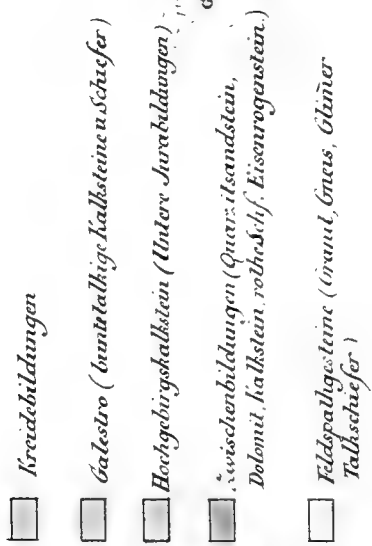 Kreidebildungen
Galestro (bunte talkige Kalksteine u Schiefer)
Hochgebirgskalkstein (Untere Jurabildungen)
Zwischenbildungen (Quarzitsandstein,
Dolomit, Kalkstein, rothe Schf. Eisenrogenstein.)
Feldspathgesteine (Granit, Gneis, Glim̄er
Talkschiefer)